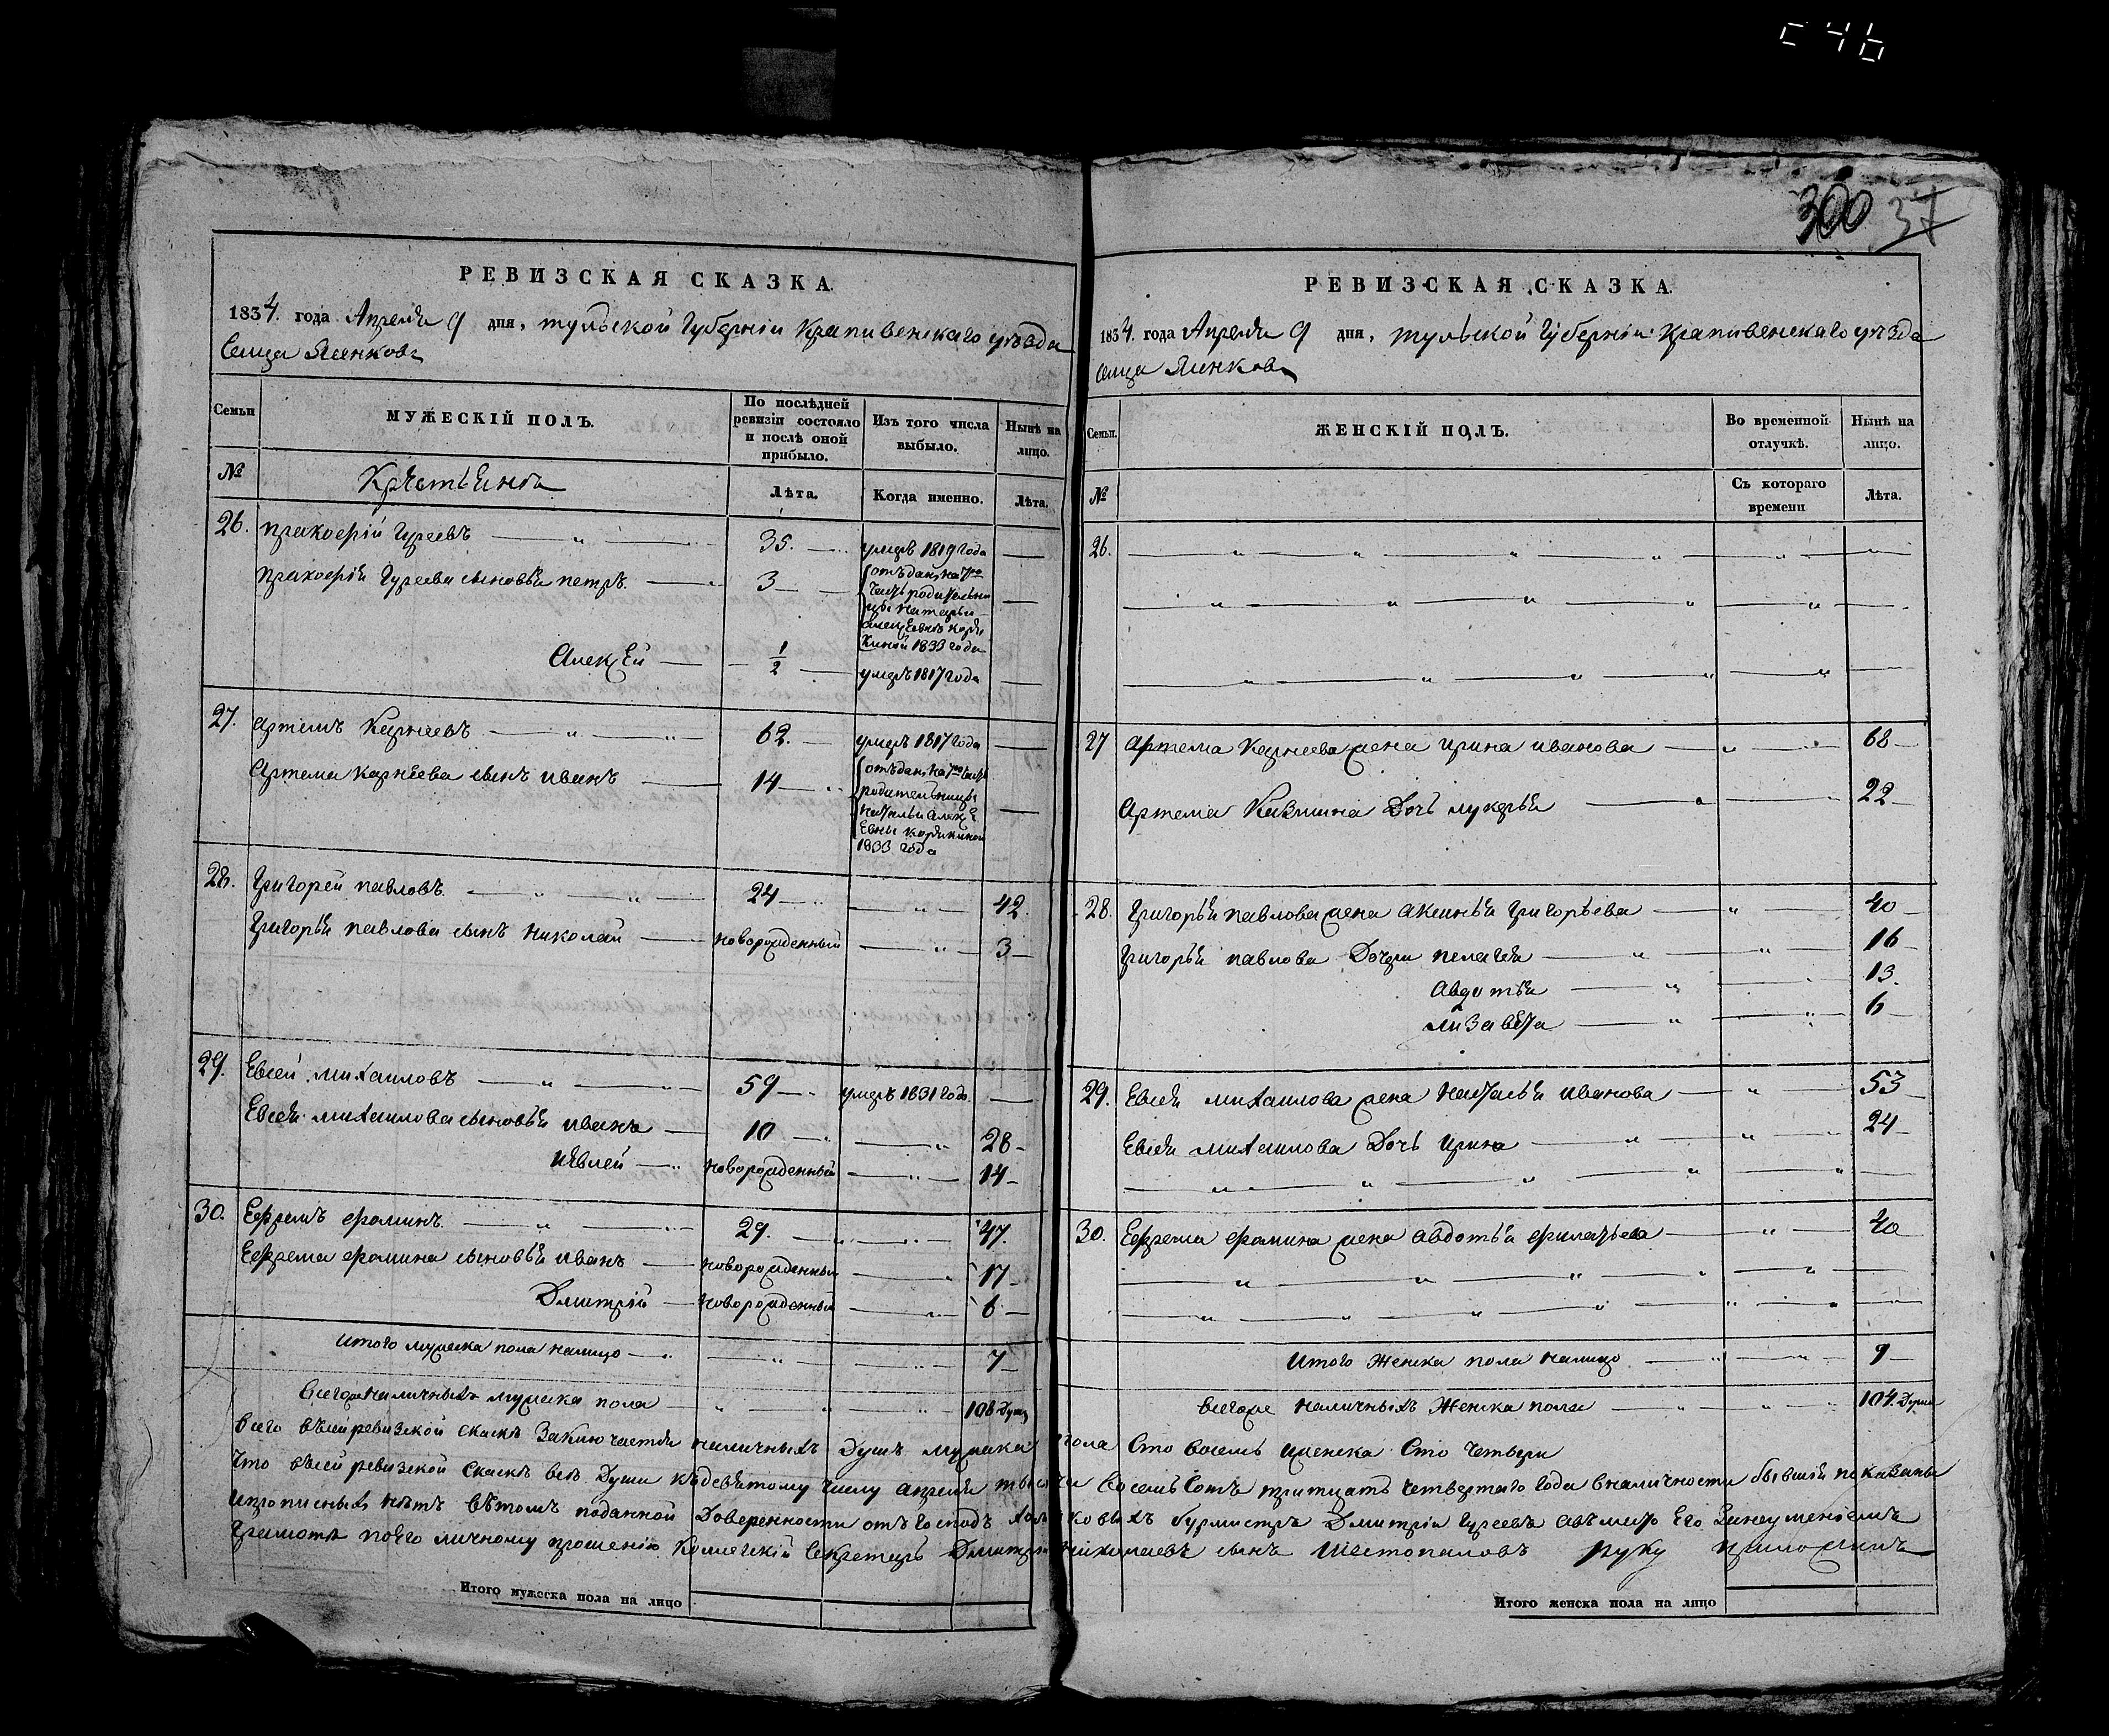 с 4 b
300 37
РЕВИЗСКАЯ СКАЗКА.
1834. года Апреля 9 дня, тульской Губернiи Крапивенскаго уѣзда
Сельца Ясенковъ
Семьи
МУЖЕСКIЙ ПОЛЪ.
По послѣдней ревизiи состояло и послѣ оной прибыло.
Изъ того числа выбыло.
Нынѣ на лицо.
№
Крестьянъ
Лѣта.
Когда именно.
Лѣта.
26. Пракофiй Гуреевъ 35. умеръ 1819 года
Пракофiя Гуреева сыновья петръ 3 отъдан на
Алексѣй 1/2 умеръ 1817 года
1833 года
27. Артемъ Карнеевъ 62. умеръ 1817 года
Артема Карнѣева сынъ иванъ 14 отъдан на
родительницы
1833 года
28. Григорей павловъ. 24 42.
Григорья павлова сынъ николай новорожденный 3
29. Евсей михаиловъ 59 умеръ 1831 года
Евсея михаилова сыновья иванъ 10 28
новорожденный 14
30. Ефремъ фоминъ. 29. 47.
Ефрема фомина сыновья иванъ новорожденный 17
Дмитрiй новорожденный 6
итого мужеска пола налицо 7
всегоже наличныхъ мужеска пола 108 Душъ
Итого мужеска пола на лицо
РЕВИЗСКАЯ СКАЗКА.
1834. года Апреля 9 дня, тульской Губернiи Крапивенскаго уѣзда
сельца Ясенковъ
Семьи.
ЖЕНСКIЙ ПОЛЪ.
Во временной отлучкѣ.
Нынѣ на лицо.
№
Съ котораго времени
Лѣта.
26.
27 Артема Карнеева жена ирина иванова 68
Артема дочь лукерья 22
28. Григорья павлова жена аксинья Григорьева 40
Григорья павлова Дочери пелагея 16
Авдотья 13.
лизавета 6
29. Евсея михаилова жена наталья иванова 53
Евсея михаилова Дочь ирина 24
30. Ефрема фомина жена авдотья филатьева 40
итого женска пола налицо 9
всегоже наличныхъ женска пола 104. Души
всего всѣй ревизской скаскѣ Заключается наличныхъ Душъ мужска пола Сто восемь иженска Сто четыри
Что всѣй ревизской Скаскѣ всѣ Души къдевятому числу апреля тысяча восемьсотъ тритцать четвертаго года вналичности бывшiя показаны
ипрописныхъ нѣтъ вѣтомъ поданной Доверенности отъ Господъ бурмистръ Дмитрiй Гуреевъ авъместо Его Занеуменiемъ
Грамоты поего личному прошенiю Коллегскiй Секретарь Дмитрiй николаевъ сынъ Шестопаловъ руку приложилъ
Итого женска пола на лицо